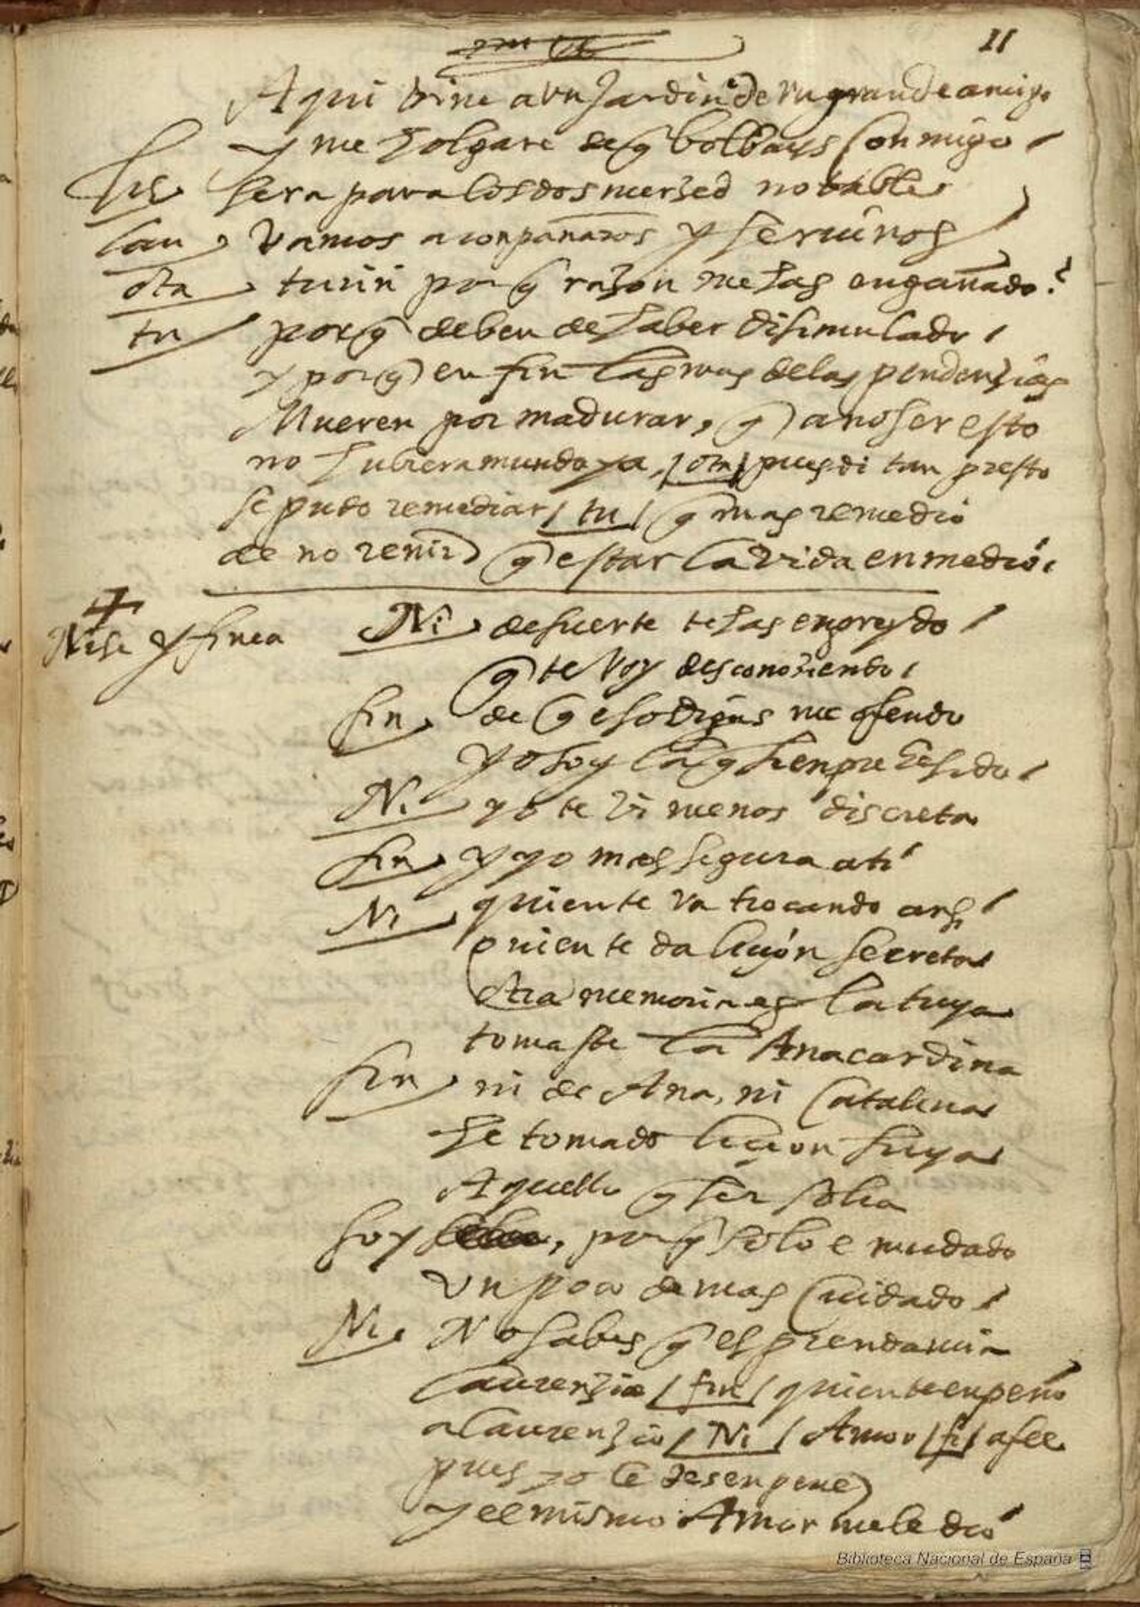 11
Aqui vine a un Jardin de un grande amigo
y me holgare de q bolbays conmigo
lis sera para los dos merzed notable
lau vamos aconpañaros y seruiros
ota turin por q razon me has engañado?
tu porq deben de haber disimulado
y porq en fin las mas de las pendenzias
Mueren por madurar, q a no ser esto
no hubiera mundo ya / ota / pues di tan presto
se pudo remediar / tu / q mas remedio
de no renir q estar la vida en medio
Nise y finea
Ni de suerte te has engreydo
q te voy desconoziendo
fin de q eso digas me ofendo
yo soy la q sienpre he sido
Ni yo te vi menos discreta
fin y yo mas segura a ti
Ni quien te va trocando ansi
quien te da liçion secreta
otra memoria es la tuya
tomaste la Anacardina
fin ni de Ana, ni Catalina
he tomado liçion suya
Aquello q ser solia
soy, porq solo e mudado
un poco de mas Cuidado
Ni No sabes q es prenda mia
Laurenzio / fin / quien te enpeño
a Laurenzio / Ni / Amor / fi / a fee
pues yo le desenpeñe
y el mismo Amor me le dio
Biblioteca Nacional de España